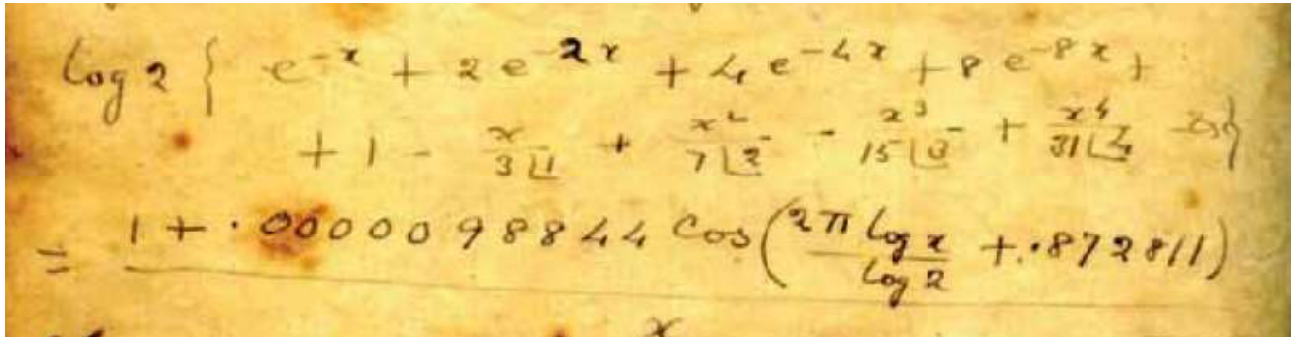 log 2 { e^{-x} + 2e^{-2x} + 4e^{-4x} + 8e^{-8x} +
+ 1 - x/(3⌊1) + x^2/(7⌊2) - x^3/(15⌊3) + x^4/(31⌊4) - &c }
= 1 + ·0000098844 cos(2π log x / log 2 + ·872811)